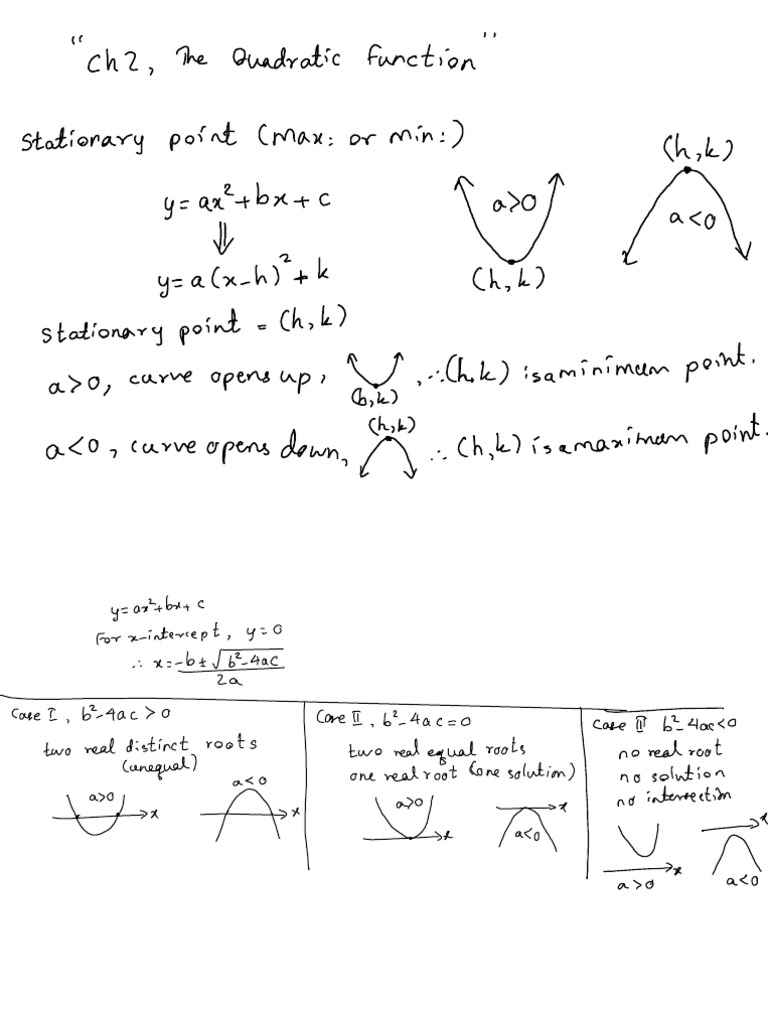 "Ch2, The Quadratic Function"
Stationary point (Max: or Min:)
y=ax²+bx+c
⇓
y=a(x-h)²+k
a>0
(h,k)
(h,k)
a<0
Stationary point = (h,k)
a>0, curve opens up, (h,k) , ∴(h,k) is a minimum point.
a<0, curve opens down, (h,k) ∴ (h,k) is a maximum point.
y=ax²+bx+c
For x-intercept, y=0
∴ x=-b±√b²-4ac/2a
Case I, b²-4ac>0
two real distinct roots
(unequal)
a>0 x
a<0 x
Case II, b²-4ac=0
two real equal roots
one real root (one solution)
a>0 x
a<0 x
Case III b²-4ac<0
no real root
no solution
no intersection
x a>0
x a<0